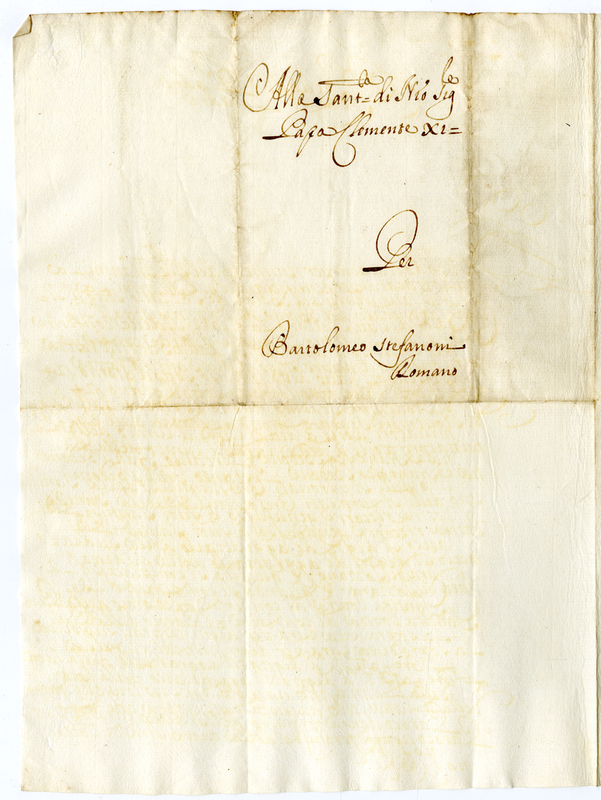 Alla Sant.tà di Nro Sig.re
Papa Clemente XI=
Per
Bartolomeo Stefanoni
Romano